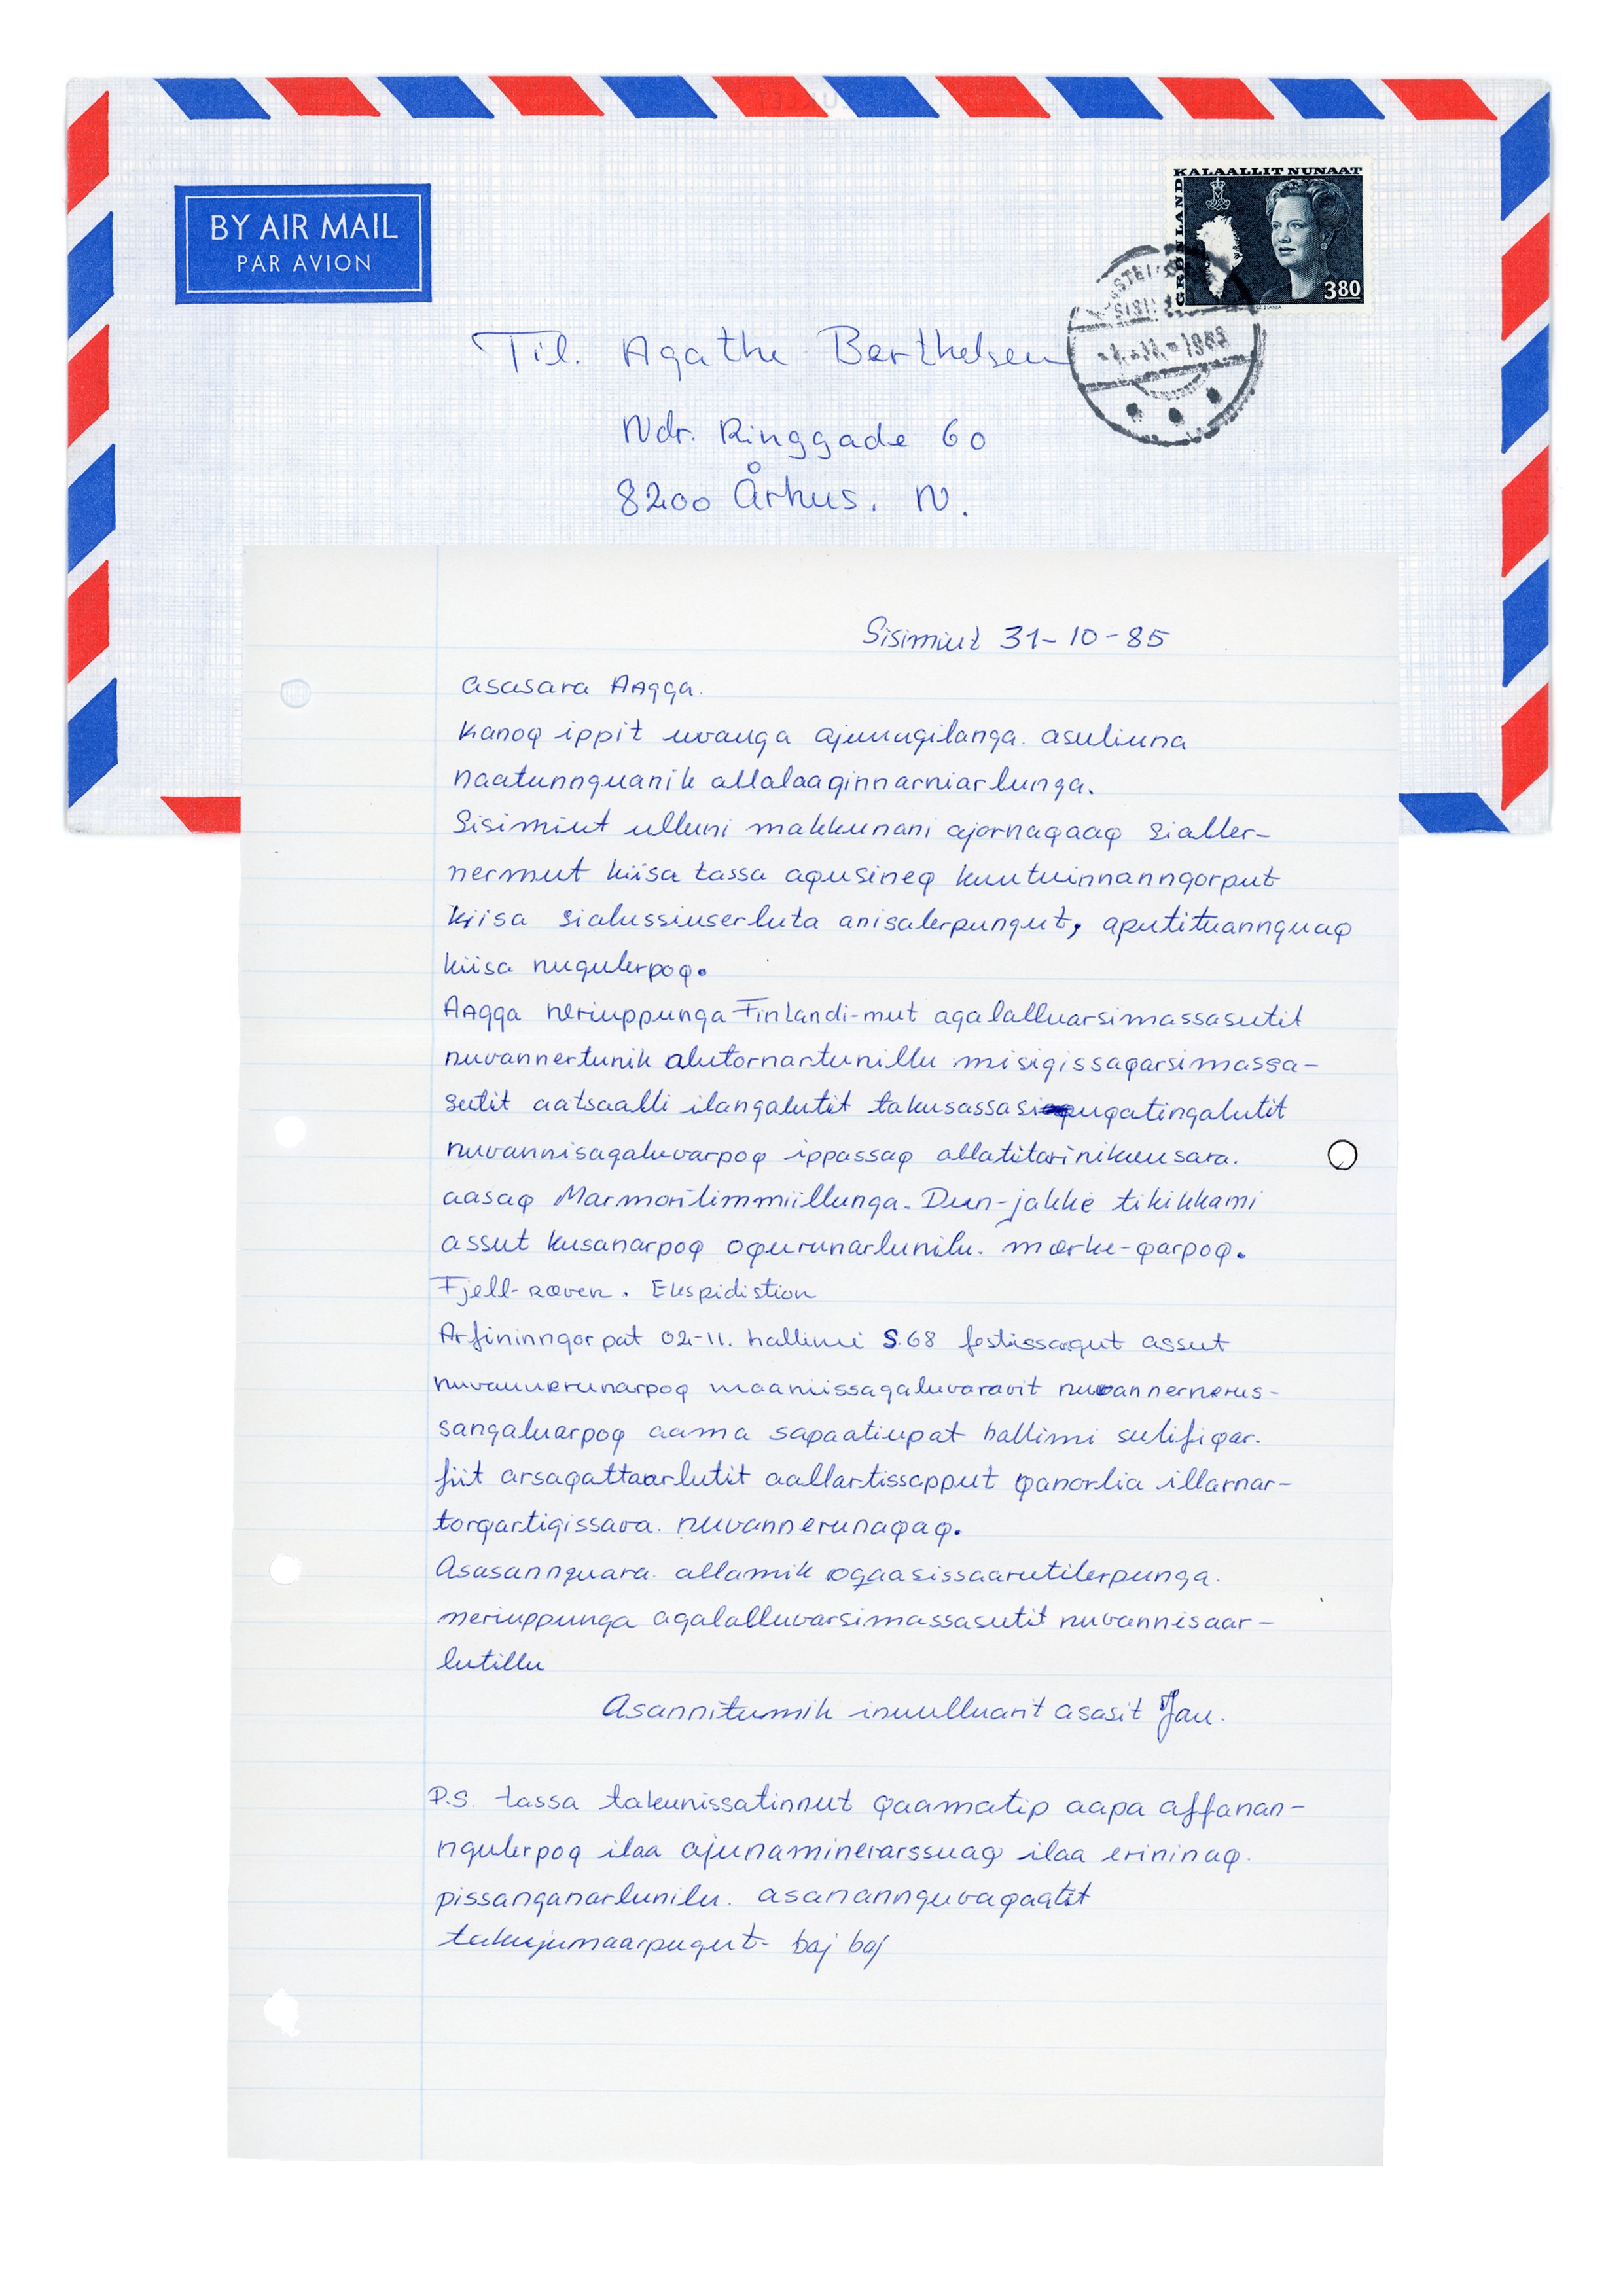 BY AIR MAIL
PAR AVION
KALAALLIT NUNAAT
GRØNLAND
380
Til. Agathe Berthelsen
Ndr. Ringgade 60
8200 Århus. N.
Sisimiut 31-10-85
asasara AAqqa.
Kanoq ippit uvanga ajunngilanga. asuliuna
naatunnguanik allalaaginnarniarlunga.
Sisimiut ulluni makkunani ajornaqaaq sialler-
nermut kiisa tassa aqusineq kuutuinnanngorput
kiisa sialussiuserluta anisalerpungut, aputituannguaq
kiisa nungulerpoq.
AAqqa neriuppunga Finlandi-mut aqalalluarsimassasutit
nuvannertunik alutornartunillu misigissaqarsimassa-
sutit aatsaalli ilangalutit takusassasi
nuvannisagaluvarpoq ippassaq allatitarinikuusara.
aasaq Marmorilimmiillunga. Dun-jakke tikikkami
assut kusanarpoq oqurunarlunilu. mærke-qarpoq.
Fjell-ræven. Ekspidistion
Arfininngorpat 02-11. hallimi S.68 festissaqut assut
nuvannerunarpoq maaniissagaluvaravit nuvannernerus-
sangaluarpoq aama sapaatiupat hallimi sulifiqar-
fiit arsaqattaarlutit aallartissapput qanorlia illarnar-
torqartigissava. nuvannerunaqaq.
Asasannguara. allamik oqaasissaarutilerpunga.
neriuppunga aqalalluvarsimassasutit nuvannisaar-
lutillu
Asannitumik inuulluarit asasit Jan.
P.S. tassa takunissatinnut qaamatip aapa affanan-
ngulerpoq ilaa ajunaminerarssuaq ilaa erininaq.
pissanganarlunilu. asanannguvaqaatit
takujumaarpugut- baj baj